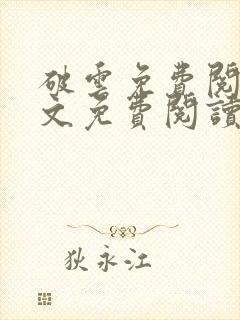 破雲免費閱
文免費閱讀
狄永江